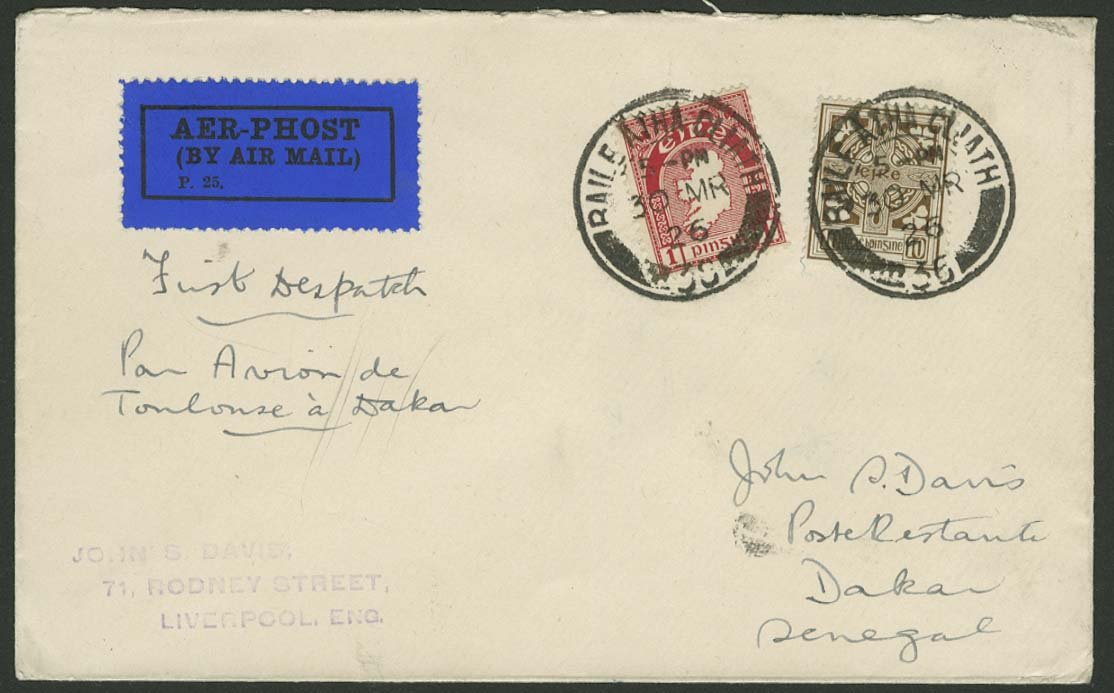 AER-PHOST
(BY AIR MAIL)
P. 25.
BAILE ATHA CLIATH
5 PM
30 MR
26
36
éire
1 pinsin
BAILE ATHA CLIATH
5 PM
30 MR
26
36
éire
10
First Despatch
Par Avion de
Toulouse à Dakar
John S. Davis
Poste Restante
Dakar
Senegal
JOHN S. DAVIS,
71, RODNEY STREET,
LIVERPOOL, ENG.